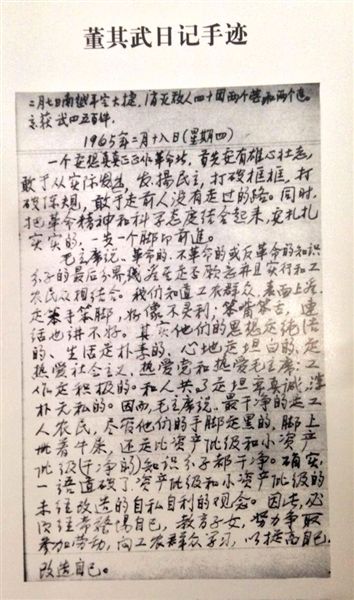 董其武日记手迹
二月七日南越军空大捷，消灭敌人四十四两个营和两个连。
武四五百件。
1965年二月十八日（星期四）
一个要想真真正正作革命者，首先要有雄心壮志，
敢于从实际发出，发揚民主，打破框框，打
破陈规，敢于走前人没有走过的路。同时，
把革命精神和科学态度结合起来，要扎扎
实实的，一步一个脚印前進。
毛主席说、革命的、不革命的或反革命的知识
分子的最后分界线、看是否愿意并且实行和工
农民众相结合。我们知道工农群众、表面上看，
是笨手笨脚，好像不灵利；笨嘴笨舌，連
话也讲不好。其实他们的思想是纯洁
的、生活是朴素的、心地是坦白的、是
热爱社会主义、热爱党和热爱毛主席；工
作是积极的。和人共了是坦率真诚、淳
朴无私的。因而，毛主席说、最干净的是工
人农民，尽管他们的手脚是黑的，脚上
带着牛屎，还是比资产阶级和小资产
阶级（干净的）知识分子都干净。确实，
一语道破了资产阶级和小资产阶级的
未经改造的自私自利的观念。因此，必
须经常警惕自己，教育子女，努力争取
参加劳动，向工农群众学习，以提高自己、
改造自己。